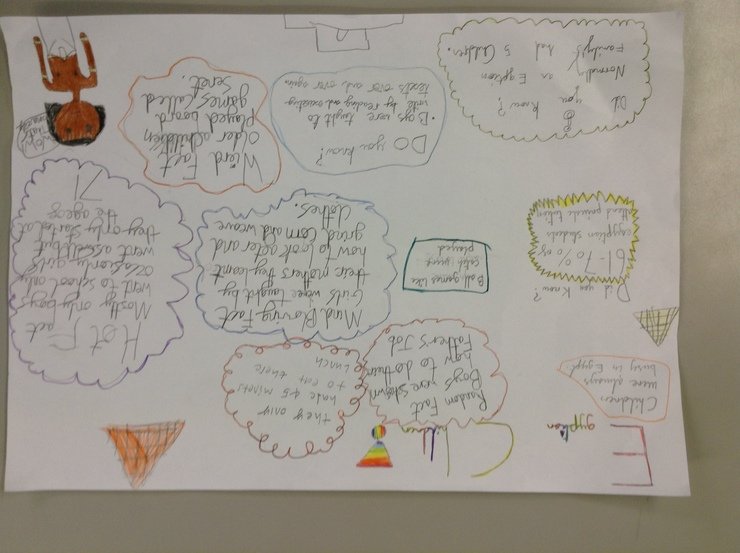 Egyption Children
Random Fact
Boys were shown
how to do their
Father's Job
they only
have 45 minets
to eat there
lunch
Children
were always
busy in Egypt
Did you know?
61-70% of
egyption students
attend private
Ball games like
catch were
played
Mind Blowing Fact
Girls were taught by
their mothers they learnt
how to look after and
grind corn and weave
clothes.
Hot Fact
Mostly only boys
went to school only
occasionly girls
went aswell but
they only started at
the age of
7!
Did
you know?
Normaly an Egyption
Family's had 5 Children.
DO you know?
• Boys were taught to
write by reading and
texts over and over again
Wierd Fact
Older children
played board
games called
senet.